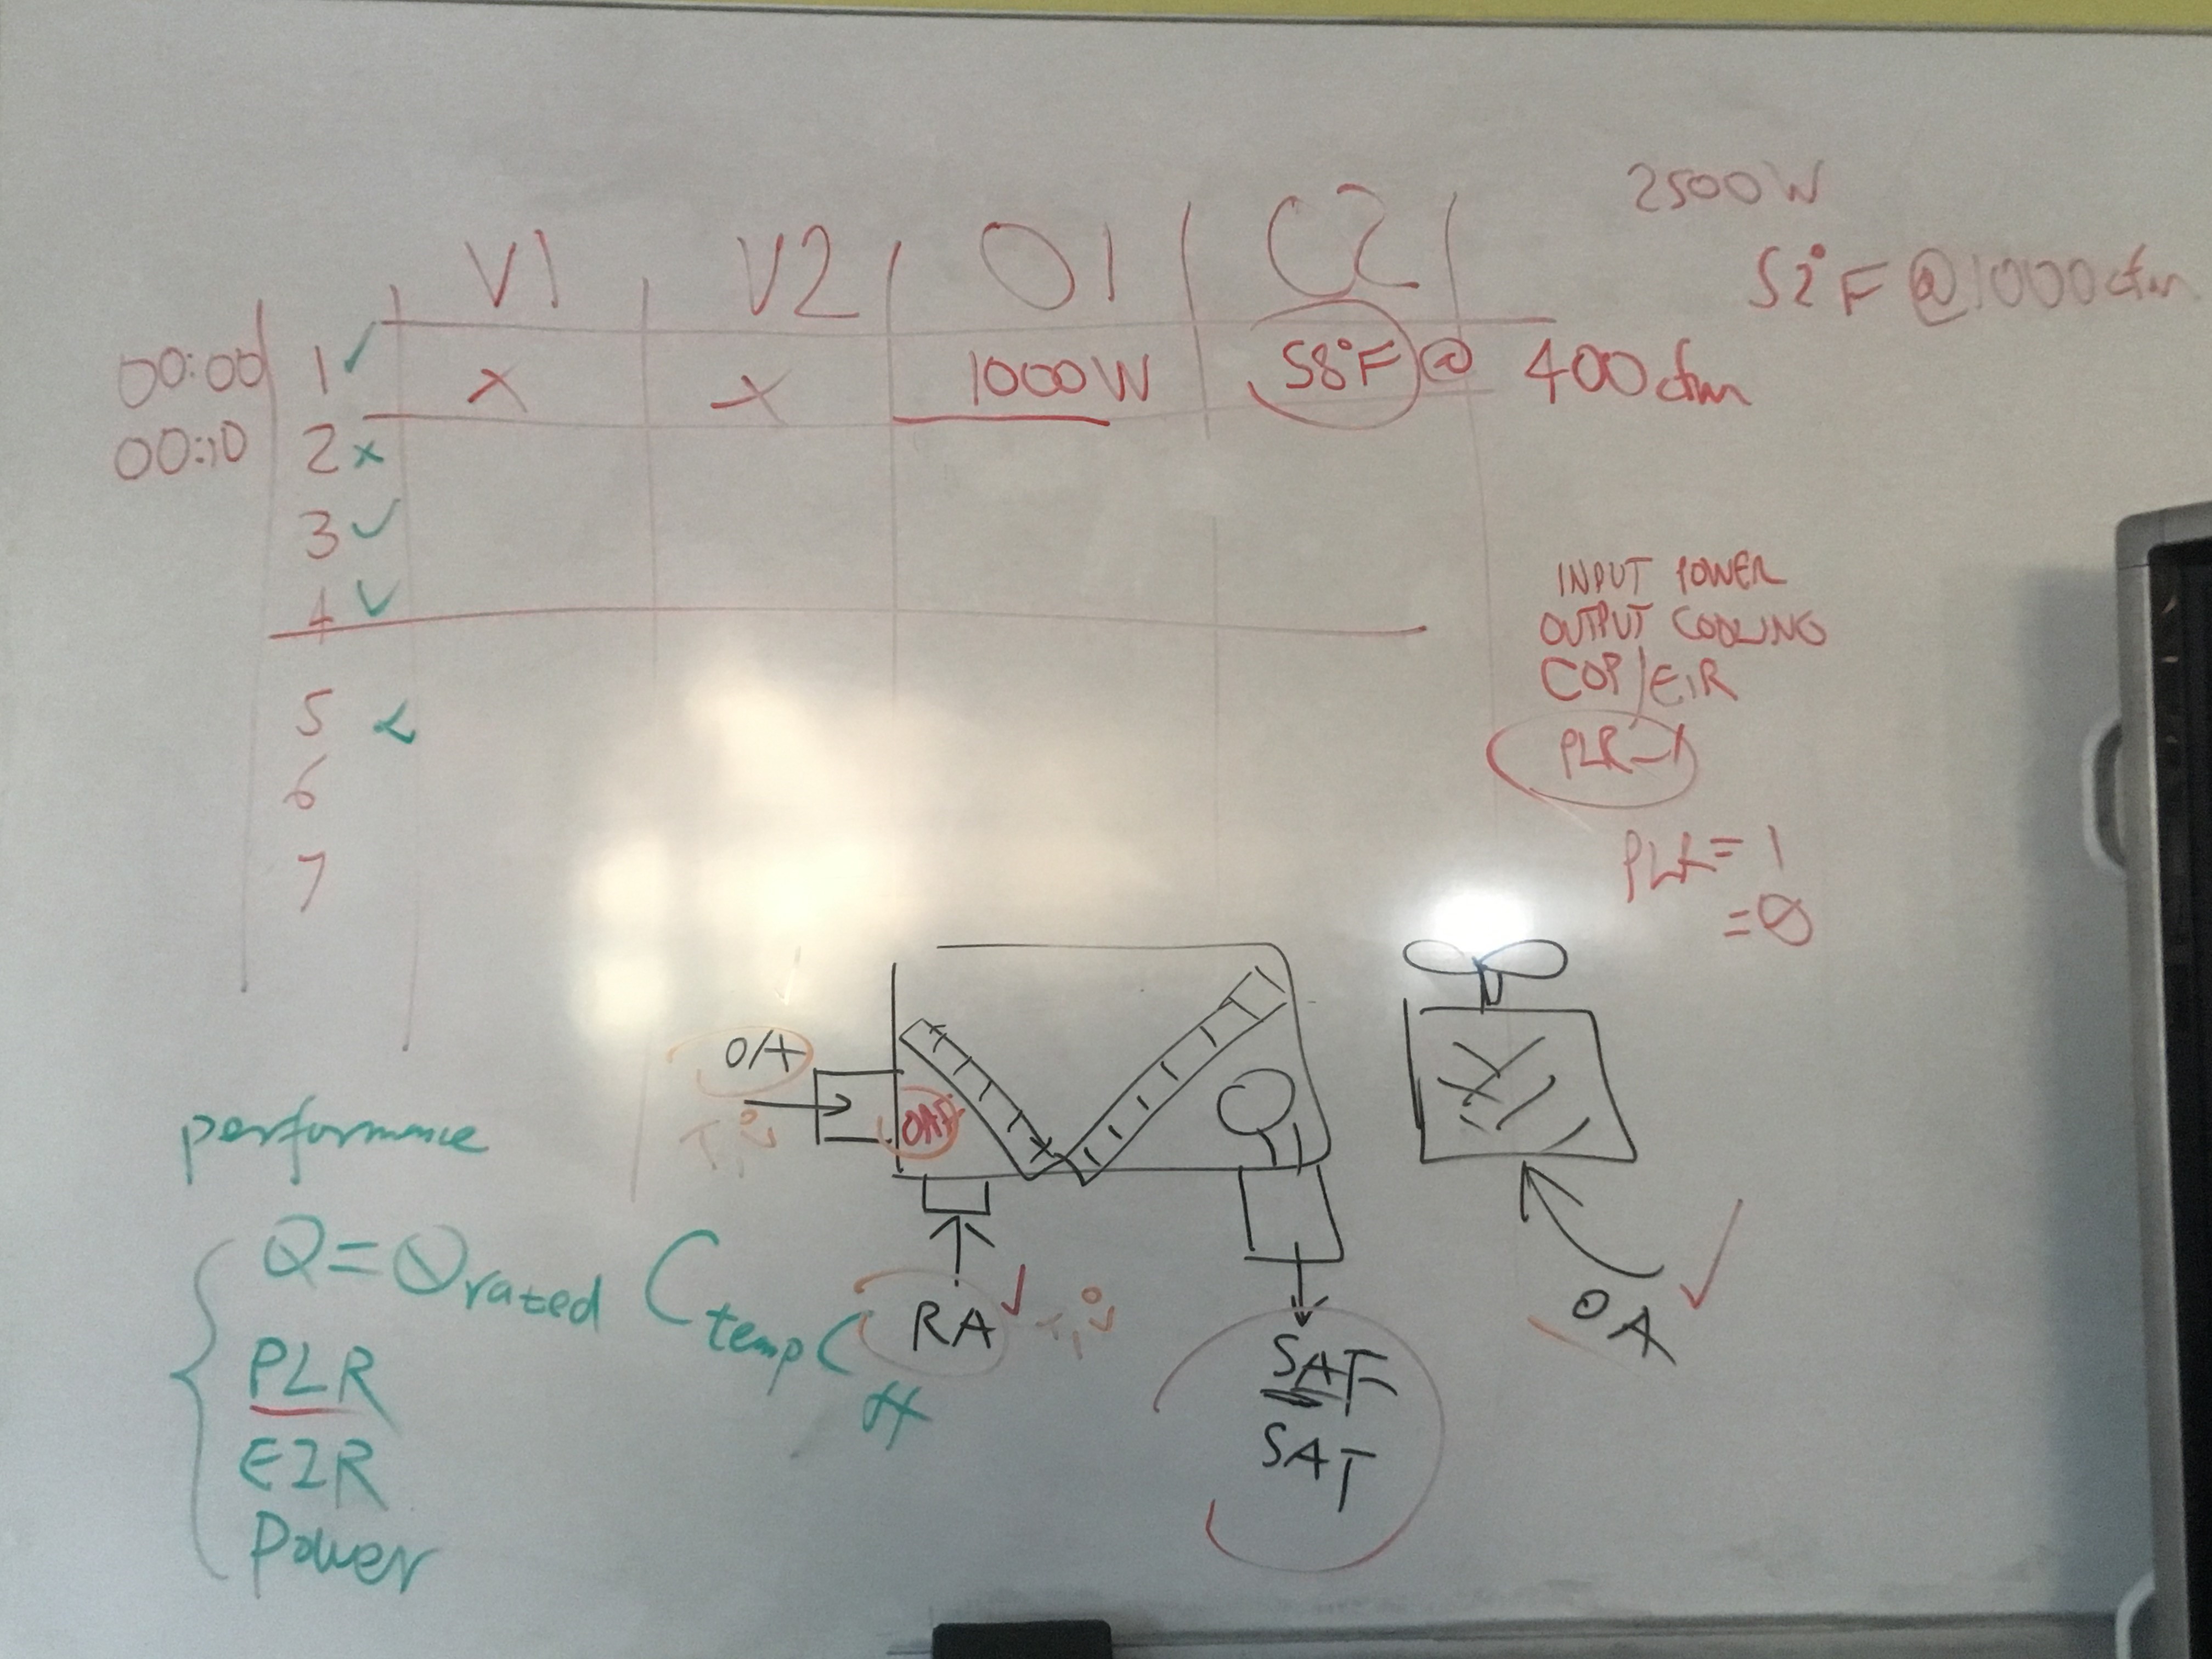 2500W
52°F @1000cfm
V1 V2 O1 C2
00:00 1 ✓ x x 1000W 58°F @ 400cfm
00:10 2 x
3 ✓
4 ✓
5
6
7
INPUT POWER
OUTPUT COOLING
COP/EIR
PLR
PLR=1
=0
OA
OAF
RA ✓
SAF
SAT
OA ✓
performance
Q=Qrated Ctemp Cff
PLR
EIR
Power